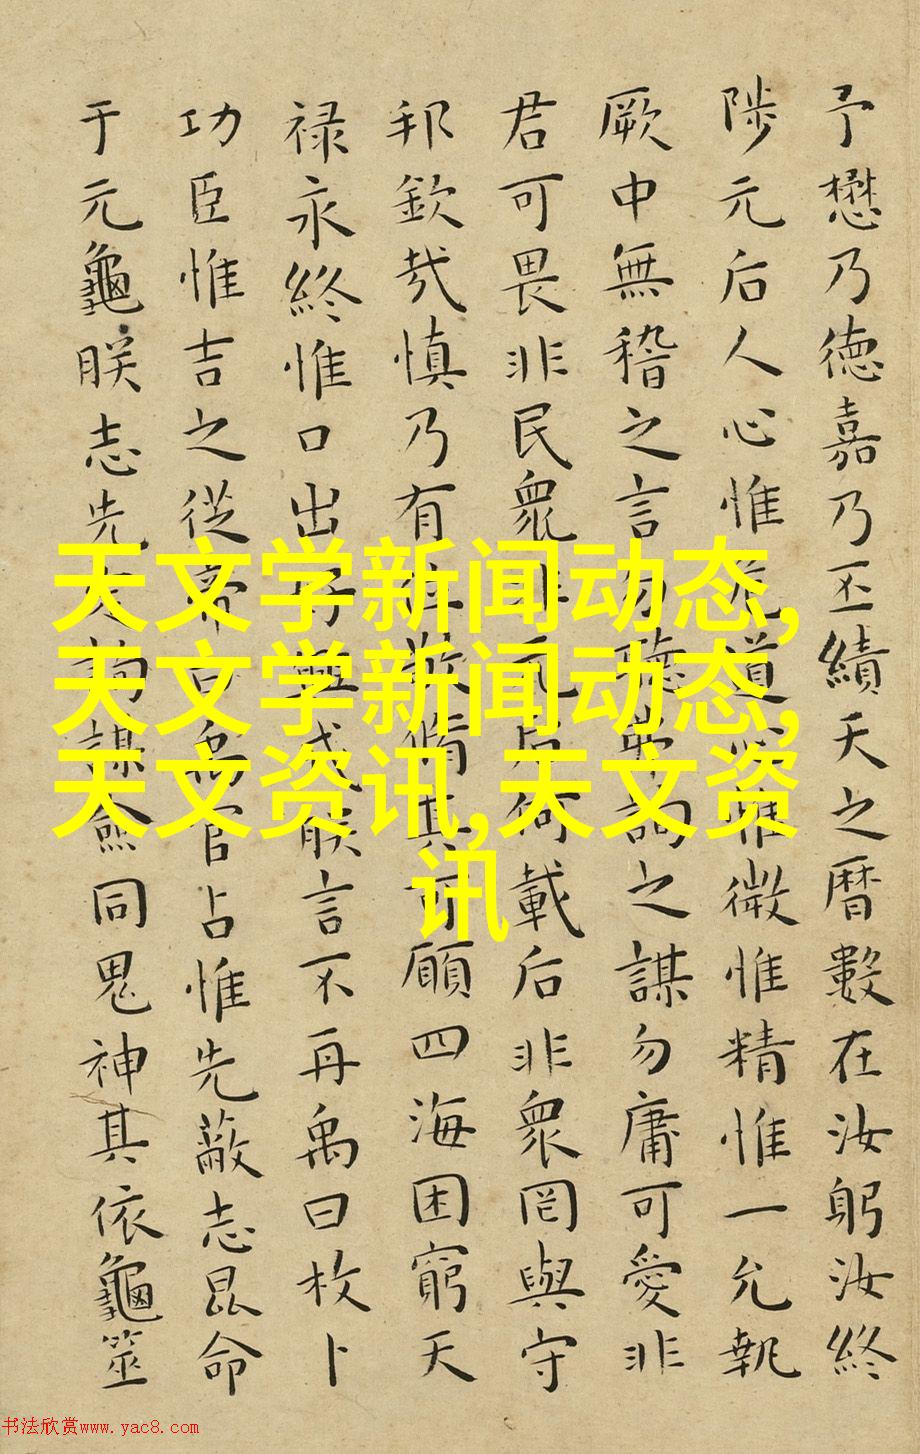 予懋乃德嘉乃丕績天之暦數在汝躬汝終
陟元后人心惟危道心惟微惟精惟一允執
厥中無稽之言勿聽弗詢之謀勿庸可愛非
君可畏非民衆非元后何載后非衆罔與守
邦欽哉慎乃有位敬脩其可願四海困窮天
禄永終惟口出好興戎朕言不再禹曰枚卜
功臣惟吉之從帝曰禹官占惟先蔽志昆命
于元龜朕志先定詢謀僉同鬼神其依龜筮
天文学新闻动态,
天文学新闻动态,
天文资讯,天文资
讯
书法欣赏www.yac8.com